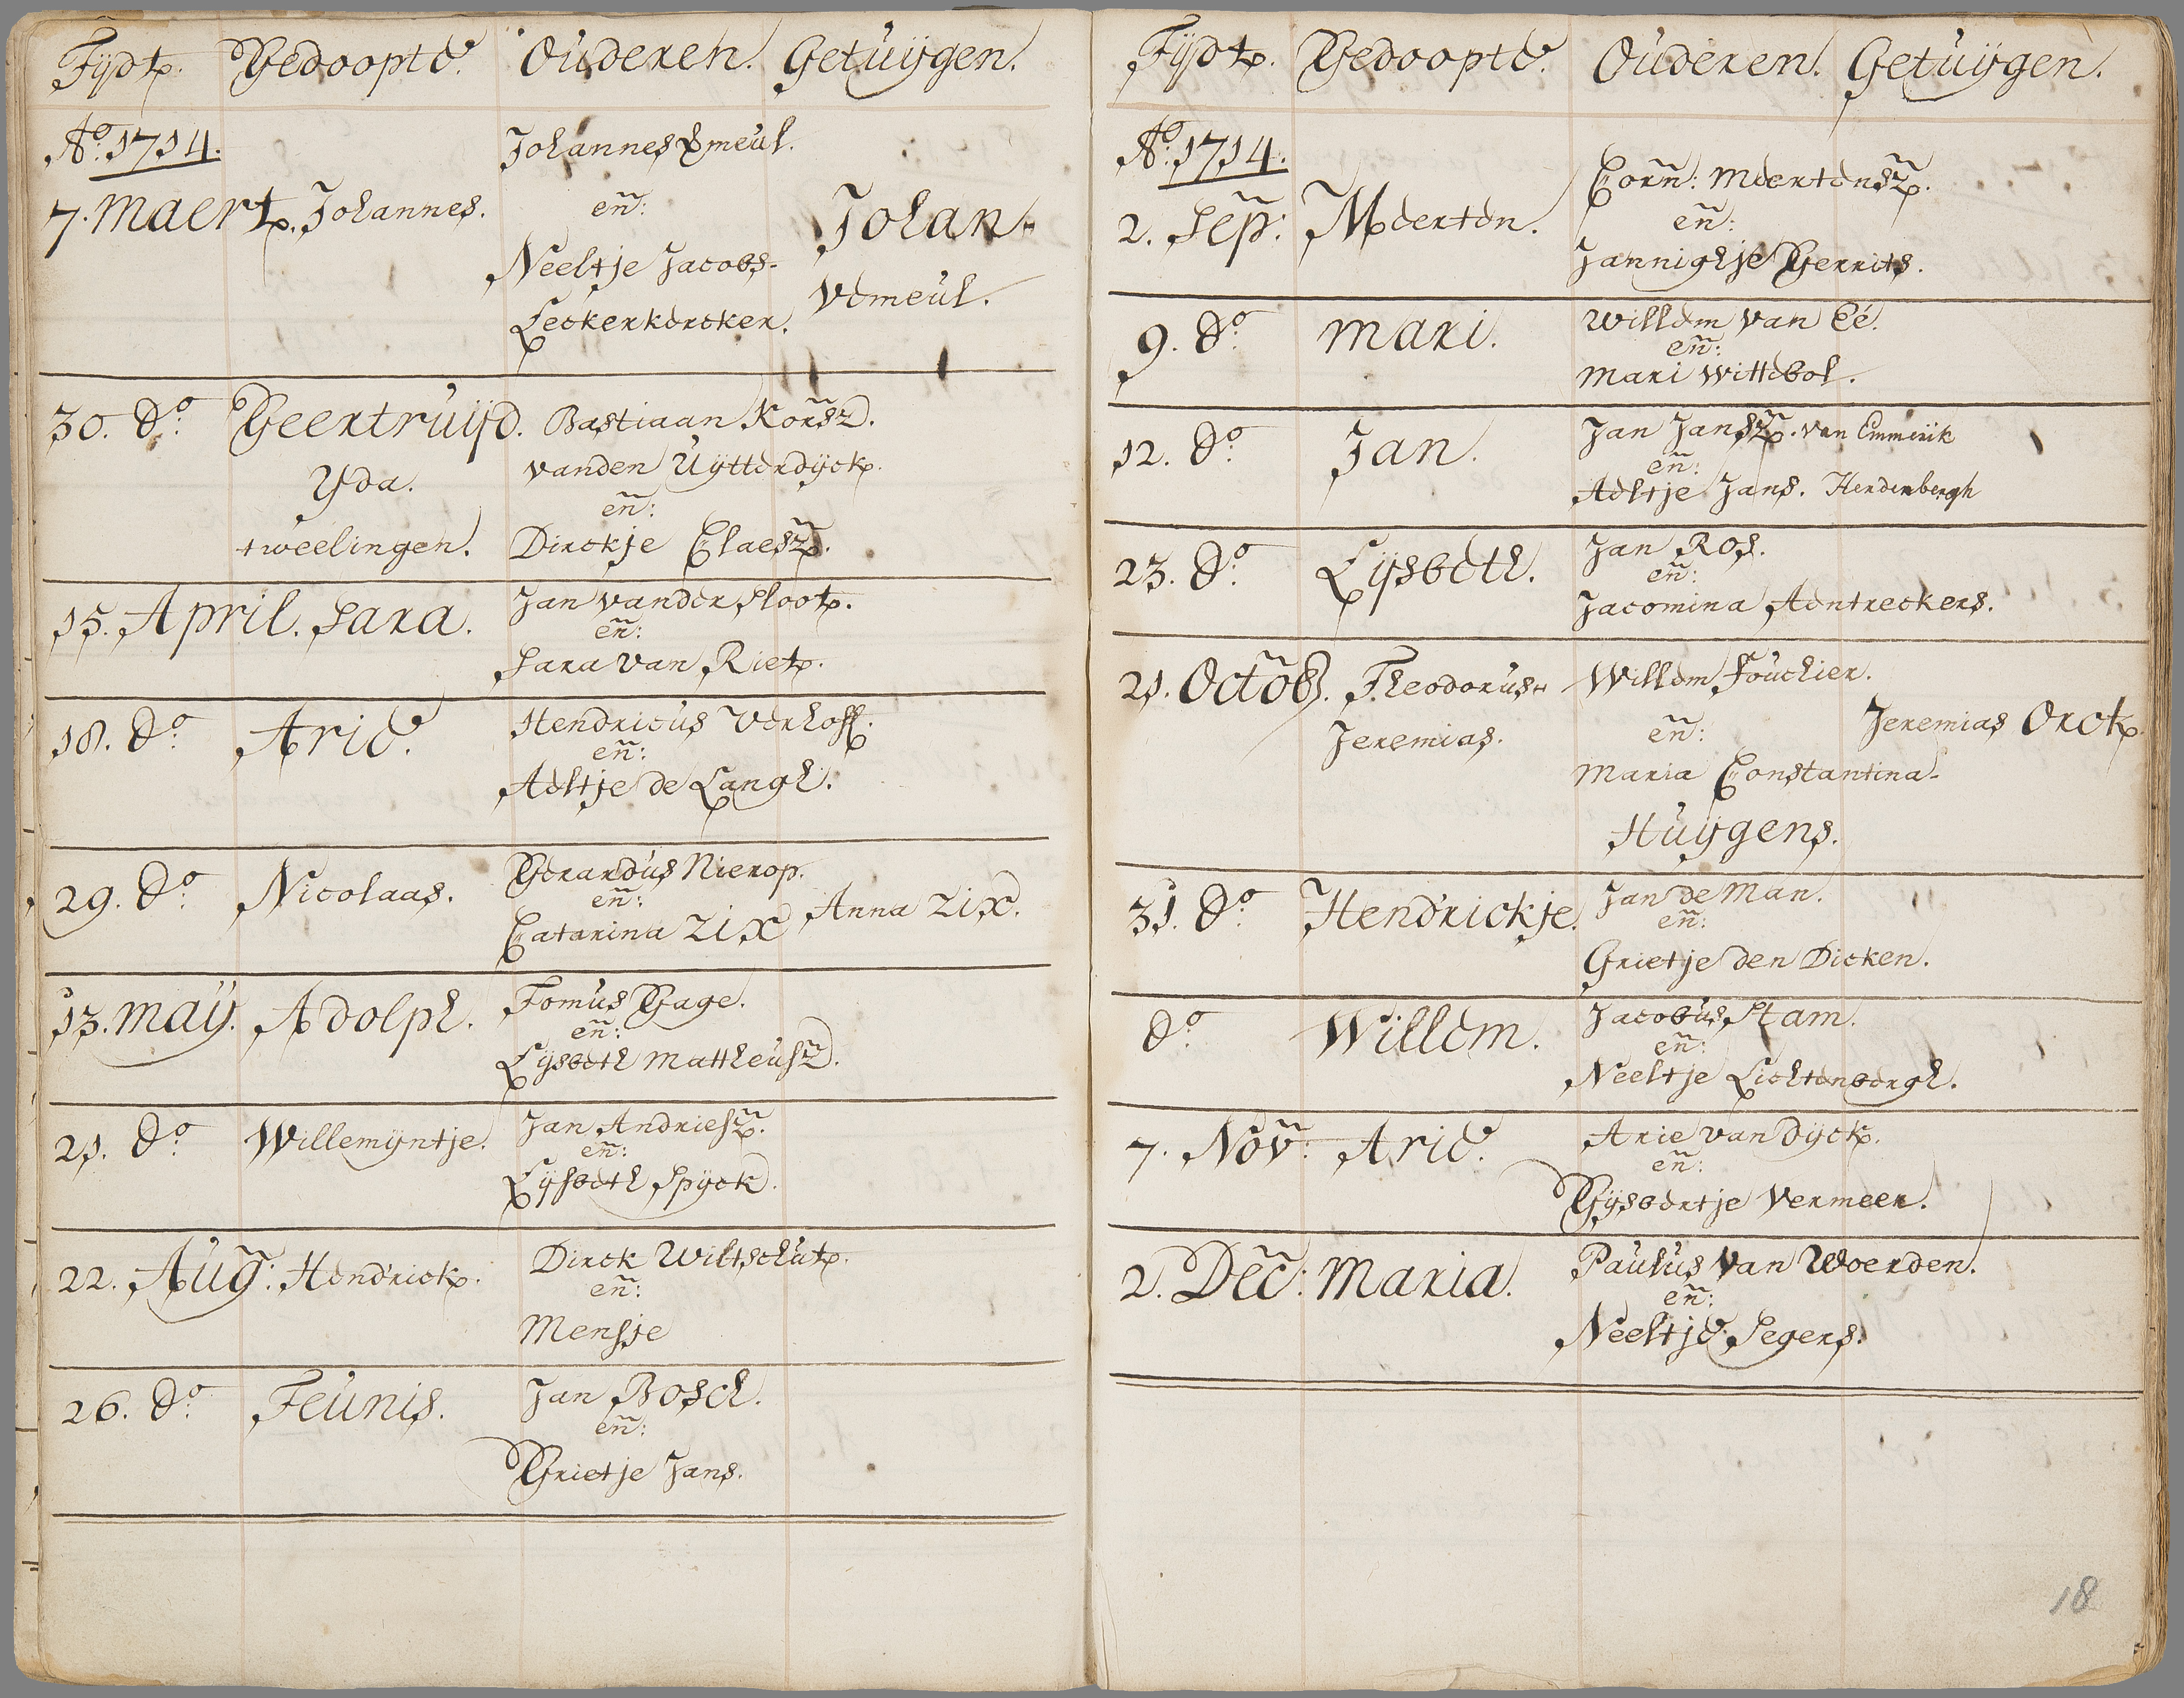 Tÿdt. Gedoopte. Ouderen. Getuÿgen.
Ao. 1714.
7. Maert. Johannes. Johannes Vmeul.
en:
Neeltje Jacobs-
Leckerkercker.
Johan-
Vemeul.
30. do. Geertruÿd. Bastiaan Korsz.
Yda. vanden Uÿtterdÿck.
en:
tweelingen. Dirckje Claesz.
15. April. Sara. Jan vander Sloot.
en:
Sara van Riet.
18. do. Arie. Hendricus Verhoff.
en:
Aeltje de Langh.
29. do. Nicolaas. Gerardus Nierop.
en:
Catarina Zix Anna Zix.
13. Maÿ. Adolph. Tomus Gage.
en:
Lÿsbeth Mattheusz.
21. do. Willemÿntje. Jan Andriesz.
en:
Lÿsbeth Spÿck.
22. Aug: Hendrick. Dirck Wiltschut.
en:
Mensje
26. do. Teunis. Jan Bosch.
en:
Grietje Jans.
Tÿdt. Gedoopte. Ouderen. Getuÿgen.
Ao. 1714.
2. Sep: Meerten. Corn: Meertensz.
en:
Jannighje Gerrits.
9. do. Mari. Willem van Eé.
en:
Mari Wittebol.
12. do. Jan. Jan Jansz. van Emmerik
en:
Aeltje Jans. Herdenbergh
23. do. Lÿsbeth. Jan Ros.
en:
Jacomina Aentreckers.
21. Octob. Theodorus- Willem Fouchier.
Jeremias. en: Jeremias Orck.
Maria Constantina-
Huÿgens.
31. do. Hendrickje. Jan de Man.
en:
Grietje den Dicken.
do. Willem. Jacobus Stam.
en:
Neeltje Lichtenbergh.
7. Nov: Arie. Arie van Dÿck.
en:
Gÿsbertje Vermeer.
2. Dec: Maria. Paulus van Woerden.
en:
Neeltje Segers.
18